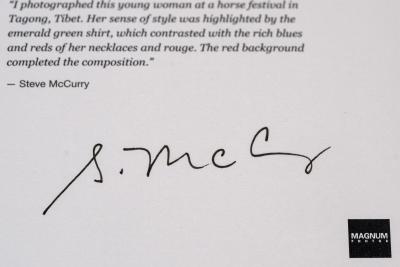 "I photographed this young woman at a horse festival in
Tagong, Tibet. Her sense of style was highlighted by the
emerald green shirt, which contrasted with the rich blues
and reds of her necklaces and rouge. The red background
completed the composition."
— Steve McCurry
S. McC
MAGNUM
PHOTOS